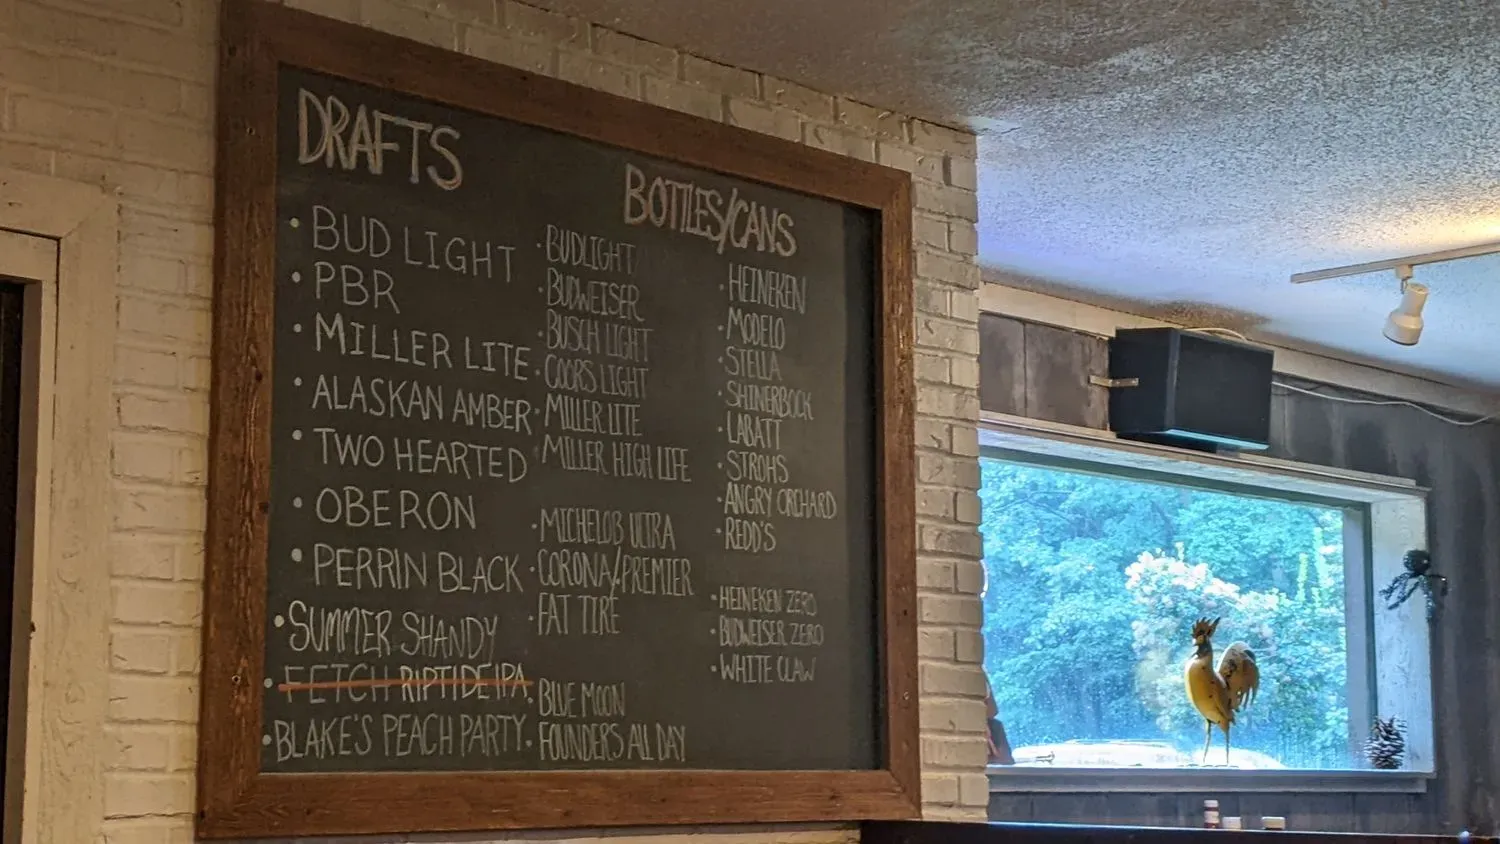 DRAFTS
• BUD LIGHT
• PBR
• MILLER LITE
• ALASKAN AMBER
• TWO HEARTED
• OBERON
• PERRIN BLACK
• SUMMER SHANDY
• FETCH RIPTIDE IPA
• BLAKE'S PEACH PARTY
BOTTLES/CANS
• BUDLIGHT
• BUDWEISER
• BUSCH LIGHT
• COORS LIGHT
• MILLER LITE
• MILLER HIGH LIFE
• MICHELOB ULTRA
• CORONA/PREMIER
• FAT TIRE
• BLUE MOON
• FOUNDERS ALL DAY
• HEINEKEN
• MODELO
• STELLA
• SHINERBOCK
• LABATT
• STROHS
• ANGRY ORCHARD
• REDD'S
• HEINEKEN ZERO
• BUDWEISER ZERO
• WHITE CLAW